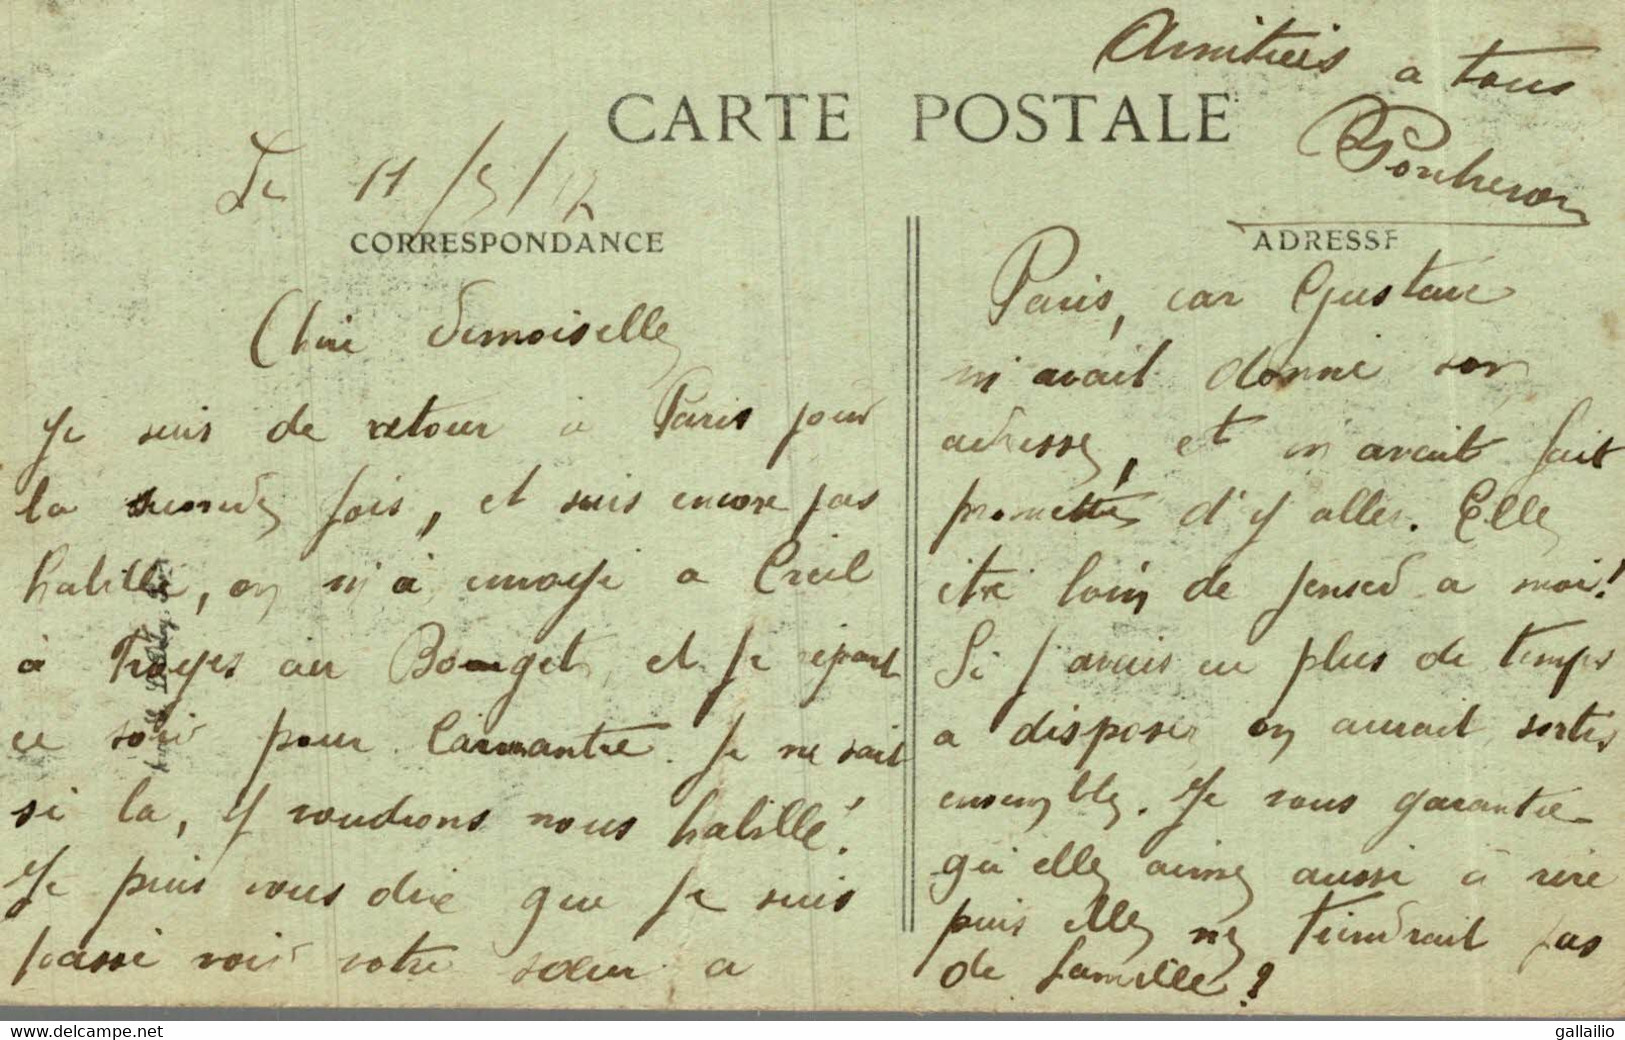 Amitiés a tous
CARTE POSTALE
Ponheron
Le 11/5/17
CORRESPONDANCE
ADRESSE
Chère demoiselle
Je suis de retour à Paris pour
la seconde fois, et suis encore pas
habillé, on m'a envoyé a Creil
à Troyes au Bourget et je repart
ce soir pour. Je ne sait
si la, y voudrons nous habillé!
Je puis vous dire que je suis
passé voir votre sœur a
Paris, car Gustave
m'avait donné son
adresse, et m'avait fait
promettre d'y aller. Elle
été loin de penser a moi!
Si j'avais eu plus de temps
a disposer on aurait sortis
ensemble. Je vous garantie
qu'elle aime aussi à rire
puis elle ne tiendrait pas
de famille?
gallailio